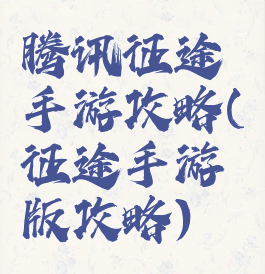 腾讯征途
手游攻略(
征途手游
版攻略)